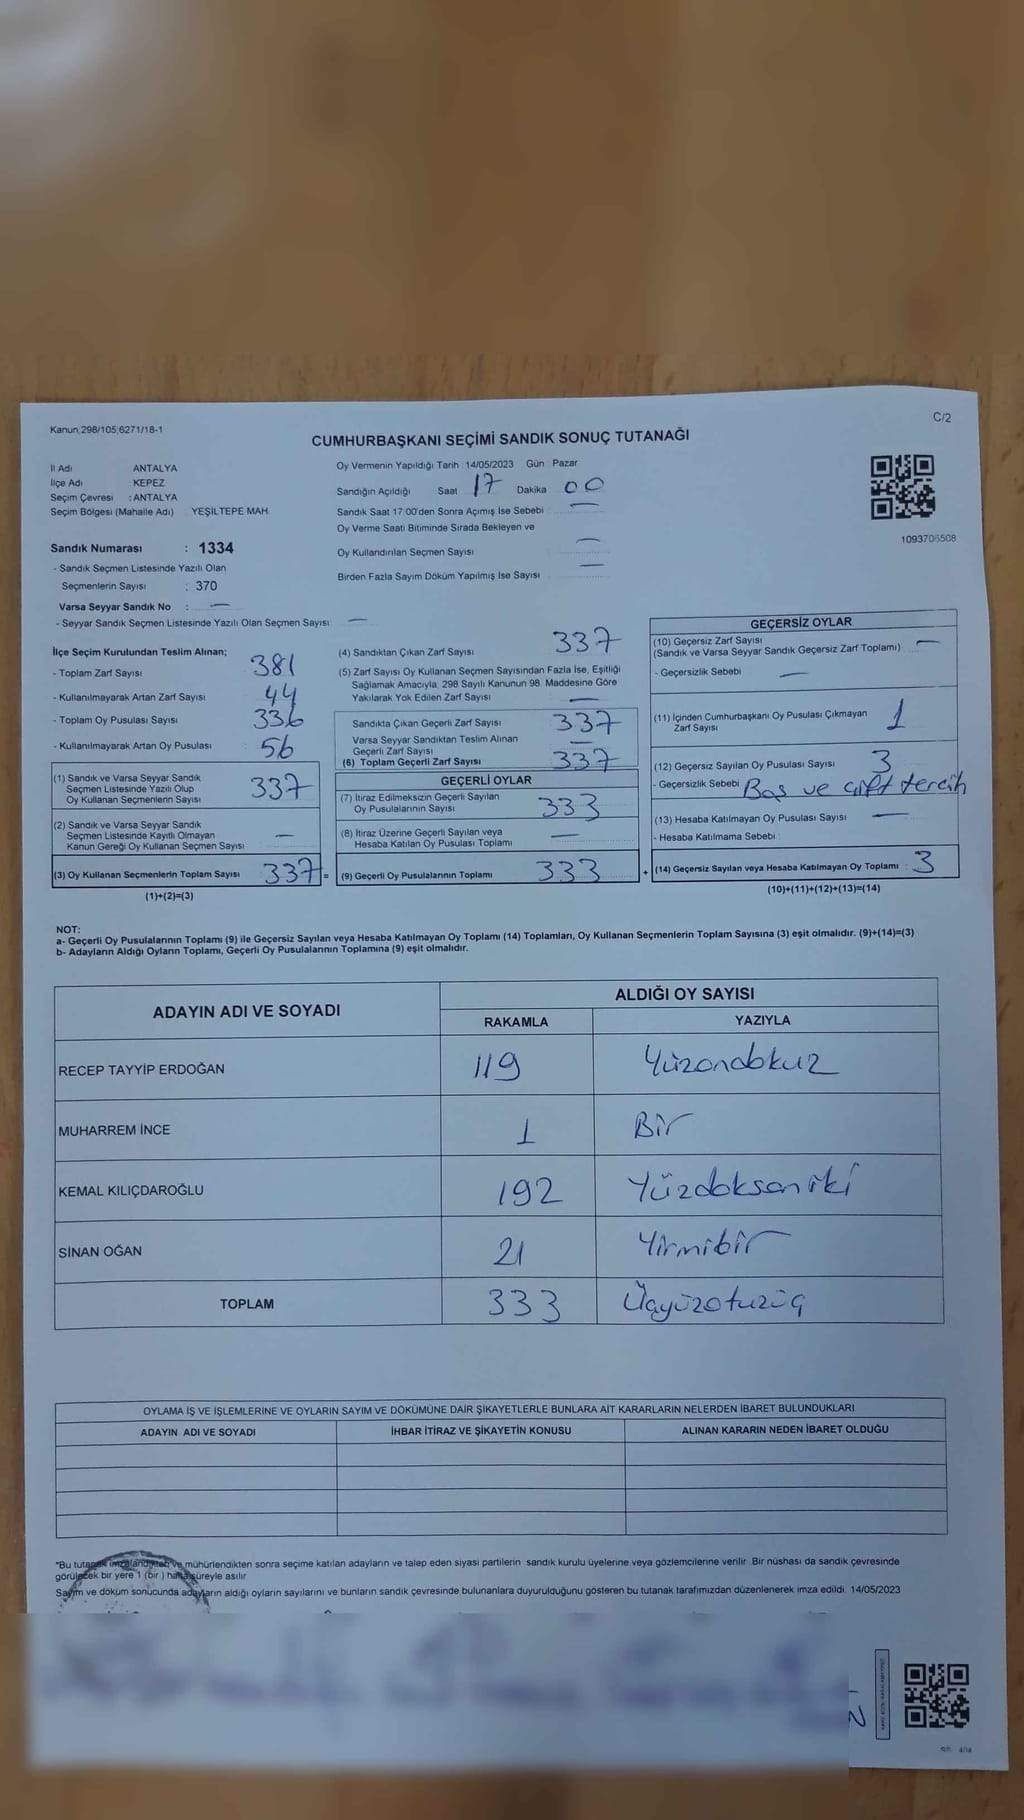 Kanun 298/105,6271/18-1
C/2
CUMHURBAŞKANI SEÇİMİ SANDIK SONUÇ TUTANAĞI
İl Adı ANTALYA
İlçe Adı KEPEZ
Seçim Çevresi : ANTALYA
Seçim Bölgesi (Mahalle Adı) YEŞİLTEPE MAH.
Oy Vermenin Yapıldığı Tarih 14/05/2023 Gün Pazar
Sandığın Açıldığı Saat 17 Dakika 00
Sandık Saat 17:00'den Sonra Açımış İse Sebebi —
Oy Verme Saati Bitiminde Sırada Bekleyen ve
Oy Kullandırılan Seçmen Sayısı —
Birden Fazla Sayım Döküm Yapılmış İse Sayısı —
1093706508
Sandık Numarası : 1334
- Sandık Seçmen Listesinde Yazılı Olan
Seçmenlerin Sayısı : 370
Varsa Seyyar Sandık No : —
- Seyyar Sandık Seçmen Listesinde Yazılı Olan Seçmen Sayısı: —
İlçe Seçim Kurulundan Teslim Alınan;
- Toplam Zarf Sayısı 381
- Kullanılmayarak Artan Zarf Sayısı 44
- Toplam Oy Pusulası Sayısı 336
- Kullanılmayarak Artan Oy Pusulası 56
(1) Sandık ve Varsa Seyyar Sandık
Seçmen Listesinde Yazılı Olup
Oy Kullanan Seçmenlerin Sayısı 337
(2) Sandık ve Varsa Seyyar Sandık
Seçmen Listesinde Kayıtlı Olmayan
Kanun Gereği Oy Kullanan Seçmen Sayısı —
(3) Oy Kullanan Seçmenlerin Toplam Sayısı 337 =
(1)+(2)=(3)
(4) Sandıktan Çıkan Zarf Sayısı 337
(5) Zarf Sayısı Oy Kullanan Seçmen Sayısından Fazla İse, Eşitliği
Sağlamak Amacıyla, 298 Sayılı Kanunun 98. Maddesine Göre
Yakılarak Yok Edilen Zarf Sayısı —
Sandıkta Çıkan Geçerli Zarf Sayısı 337
Varsa Seyyar Sandıktan Teslim Alınan
Geçerli Zarf Sayısı —
(6) Toplam Geçerli Zarf Sayısı 337
GEÇERLİ OYLAR
(7) İtiraz Edilmeksizin Geçerli Sayılan
Oy Pusulalarının Sayısı 333
(8) İtiraz Üzerine Geçerli Sayılan veya
Hesaba Katılan Oy Pusulası Toplamı —
(9) Geçerli Oy Pusulalarının Toplamı 333 +
GEÇERSİZ OYLAR
(10) Geçersiz Zarf Sayısı —
(Sandık ve Varsa Seyyar Sandık Geçersiz Zarf Toplamı)
- Geçersizlik Sebebi —
(11) İçinden Cumhurbaşkanı Oy Pusulası Çıkmayan
Zarf Sayısı 1
(12) Geçersiz Sayılan Oy Pusulası Sayısı 3
- Geçersizlik Sebebi Boş ve çift tercih
(13) Hesaba Katılmayan Oy Pusulası Sayısı —
- Hesaba Katılmama Sebebi
(14) Geçersiz Sayılan veya Hesaba Katılmayan Oy Toplamı : 3
(10)+(11)+(12)+(13)=(14)
NOT:
a- Geçerli Oy Pusulalarının Toplamı (9) ile Geçersiz Sayılan veya Hesaba Katılmayan Oy Toplamı (14) Toplamları, Oy Kullanan Seçmenlerin Toplam Sayısına (3) eşit olmalıdır. (9)+(14)=(3)
b- Adayların Aldığı Oyların Toplamı, Geçerli Oy Pusulalarının Toplamına (9) eşit olmalıdır.
ADAYIN ADI VE SOYADI
ALDIĞI OY SAYISI
RAKAMLA YAZIYLA
RECEP TAYYİP ERDOĞAN 119 Yüzondokuz
MUHARREM İNCE 1 Bir
KEMAL KILIÇDAROĞLU 192 Yüzdoksaniki
SİNAN OĞAN 21 Yirmibir
TOPLAM 333 Üçyüzotuzüç
OYLAMA İŞ VE İŞLEMLERİNE VE OYLARIN SAYIM VE DÖKÜMÜNE DAİR ŞİKAYETLERLE BUNLARA AİT KARARLARIN NELERDEN İBARET BULUNDUKLARI
ADAYIN ADI VE SOYADI İHBAR İTİRAZ VE ŞİKAYETİN KONUSU ALINAN KARARIN NEDEN İBARET OLDUĞU
*Bu tutanak imzalandıktan ve mühürlendikten sonra seçime katılan adayların ve talep eden siyasi partilerin sandık kurulu üyelerine veya gözlemcilerine verilir. Bir nüshası da sandık çevresinde
görülecek bir yere 1 (bir) hafta süreyle asılır
Sayım ve döküm sonucunda adayların aldığı oyların sayılarını ve bunların sandık çevresinde bulunanlara duyurulduğunu gösteren bu tutanak tarafımızdan düzenlenerek imza edildi. 14/05/2023